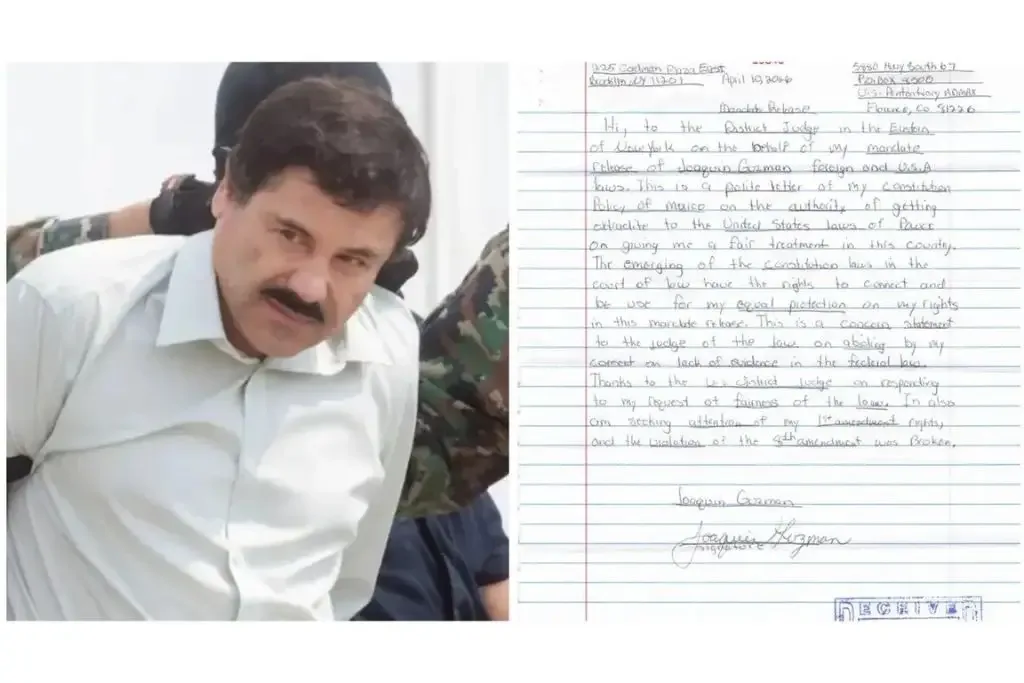 225 Cadman Plaza East
Brooklyn, NY 11201
April 10, 2026
5880 Hwy South 67
P.O. Box 8500
U.S. Penitentiary ADMAX
Florence, Co 81226
Mandate Release
Hi, to the District Judge in the Eastern
of New York on the behalf of my mandate
release of Joaquin Guzman foreign and U.S.A
laws. This is a polite letter of my constitution
Policy of on the authority of getting
extradite to the United States laws of Power
on giving me a fair treatment in this country.
The emerging of the constitution laws in the
court of law have the rights to connect and
be use for my equal protection on my rights
in this mandate release. This is a concern statement
to the judge of the law on by my
consent on lack of evidence in the federal law.
Thanks to the U.S District Judge on responding
to my request of fairness of the laws. In also
am seeking attention of my 1st amendment rights,
and the violation of the 8th amendment was Broken.
Joaquin Guzman
Joaquin Guzman
Signature
RECEIVED